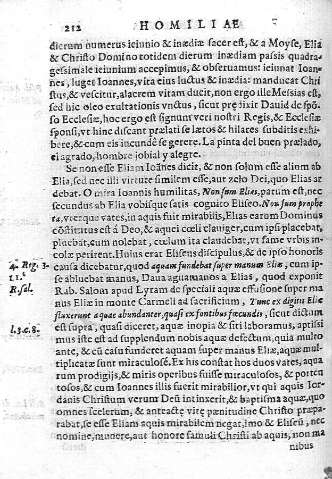 212 HOMILIAE
dierum numerus ieiunio & inædiæ sacer est, & a Moyse, Elia
& Christo Domino totidem dierum inædiam passis quadra-
gessimale ieiunium accepimus, & obseruamus: ieiunat Ioan-
nes, luget Ioannes, vita eius luctus & inædia: manducat Chri-
stus, & vescitur, alacrem vitam ducit, non ergo ille Messias est,
sed hic oleo exultationis vnctus, sicut præfixit Dauid de spõ-
so Ecclesiæ, hoc ergo est signum veri nostri Regis, & Ecclesiæ
sponsi, vt hinc discant prælati se lætos & hilares subditis exhi-
bere, & cum eis iucundè se gerere. La pinta del buen prælado,
es agrado, hombre jobial y alegre.
Se non esse Eliam Ioãnes dicit, & non solum esse alium ab
Elia, sed nec illi virtute similem esse, aut zelo Dei, quo Elias ar
debat. O mira Ioannis humilitas, Non sum Elias, parum est, nec
secundus ab Elia vobisque satis cognito Eliseo. Non sum prophe
ta, vterque vates, in aquis fuit mirabilis, Elias earum Dominus
cõstitutus est à Deo, & aquei cœli clauiger, cum ipsi placebat,
pluebat, cum nolebat, cœlum ita claudebat, vt fame vrbis in-
colæ perirent. Huius erat Eliseus discipulus, & de ipso honoris
4. Reg. 3. causa dicebatur, quod aquam fundebat super manus Eliæ, cum ip-
11. se abluebat manus, Daua aguamanos a Elias, quod exponit
R. sal. Rab. Salom apud Lyram de speciali aquæ effusione super ma
nus Eliæ in monte Carmeli ad sacrificium, Tunc ex digitis Eliæ
fluxerunt aquæ abundanter, quasi ex fontibus fœcundis, sicut dictum
l. 3. c. 8. est supra, quasi diceret, aquæ inopia & siti laboramus, aptissi-
mus iste est ad supplendum nobis aquæ defectum, quia multo
ante, & cũ casu funderet aquam super manus Eliæ, aquæ mul-
tiplicatæ sunt miraculosè. Ex his constat hos duos vates, aqua
rum prodigijs, & miris operibus fuisse miraculosos, & porten
tosos, & cum Ioannes illis fuerit mirabilior, vt qui aquis Ior-
danis Christum verum Deũ intinxerit, & baptisma aquæ, quo
omnes scelerum, & anteactæ vitæ pænitudine Christo præpa-
rabat, se esse Eliam aquis mirabilem negat, imo & Eliseũ, nec
nomine, munere, aut honore famuli Christi ab aquis, non ma
nibus